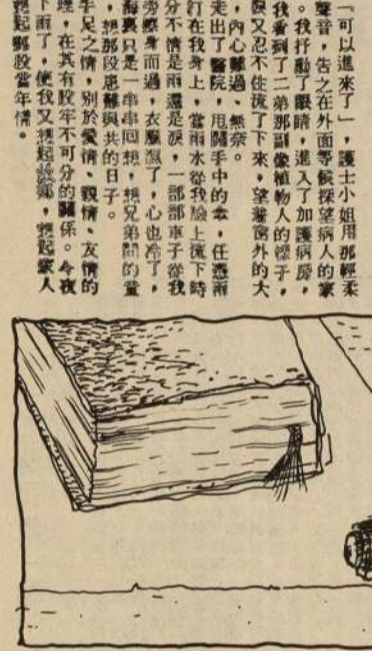 「可以進來了」,護士小姐用那輕柔
聲音,告之在外面等候探望病人的家
。我抒動了眼睛,進入了加護病房,
我看到了二弟那副像植物人的樣子,
淚又忍不住流了下來,望著窗外的大
,內心難過、無奈。
走出了醫院,甩開手中的傘,任憑雨
打在我身上,當雨水從我臉上流下時
分不清是雨還是淚,一部部車子從我
旁擦身而過,衣服濕了,心也冷了,
海裏只是一串串回想,想兄弟間的童
,想那段患難與共的日子。
手足之情,別於愛情、親情、友情的
理,在其有股牢不可分的關係。今夜
下雨了,使我又想起故鄉,想起家人
想起那段當年情。